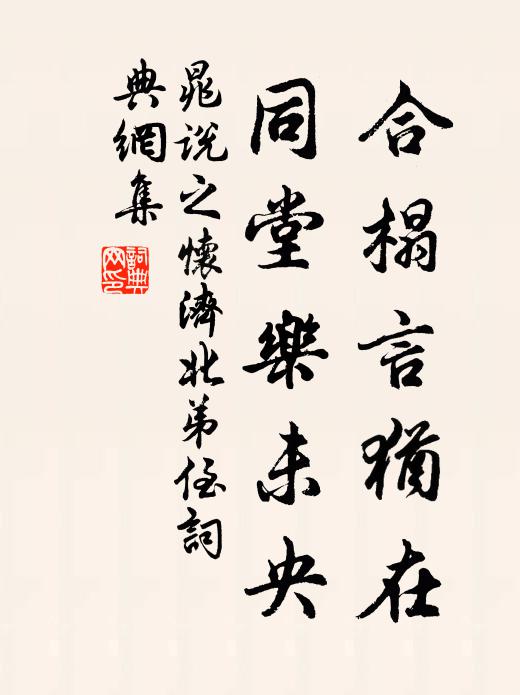 合榻言猶在
同堂樂未央
晁説之懷濟北弟侄詞
典網集
詞典網印